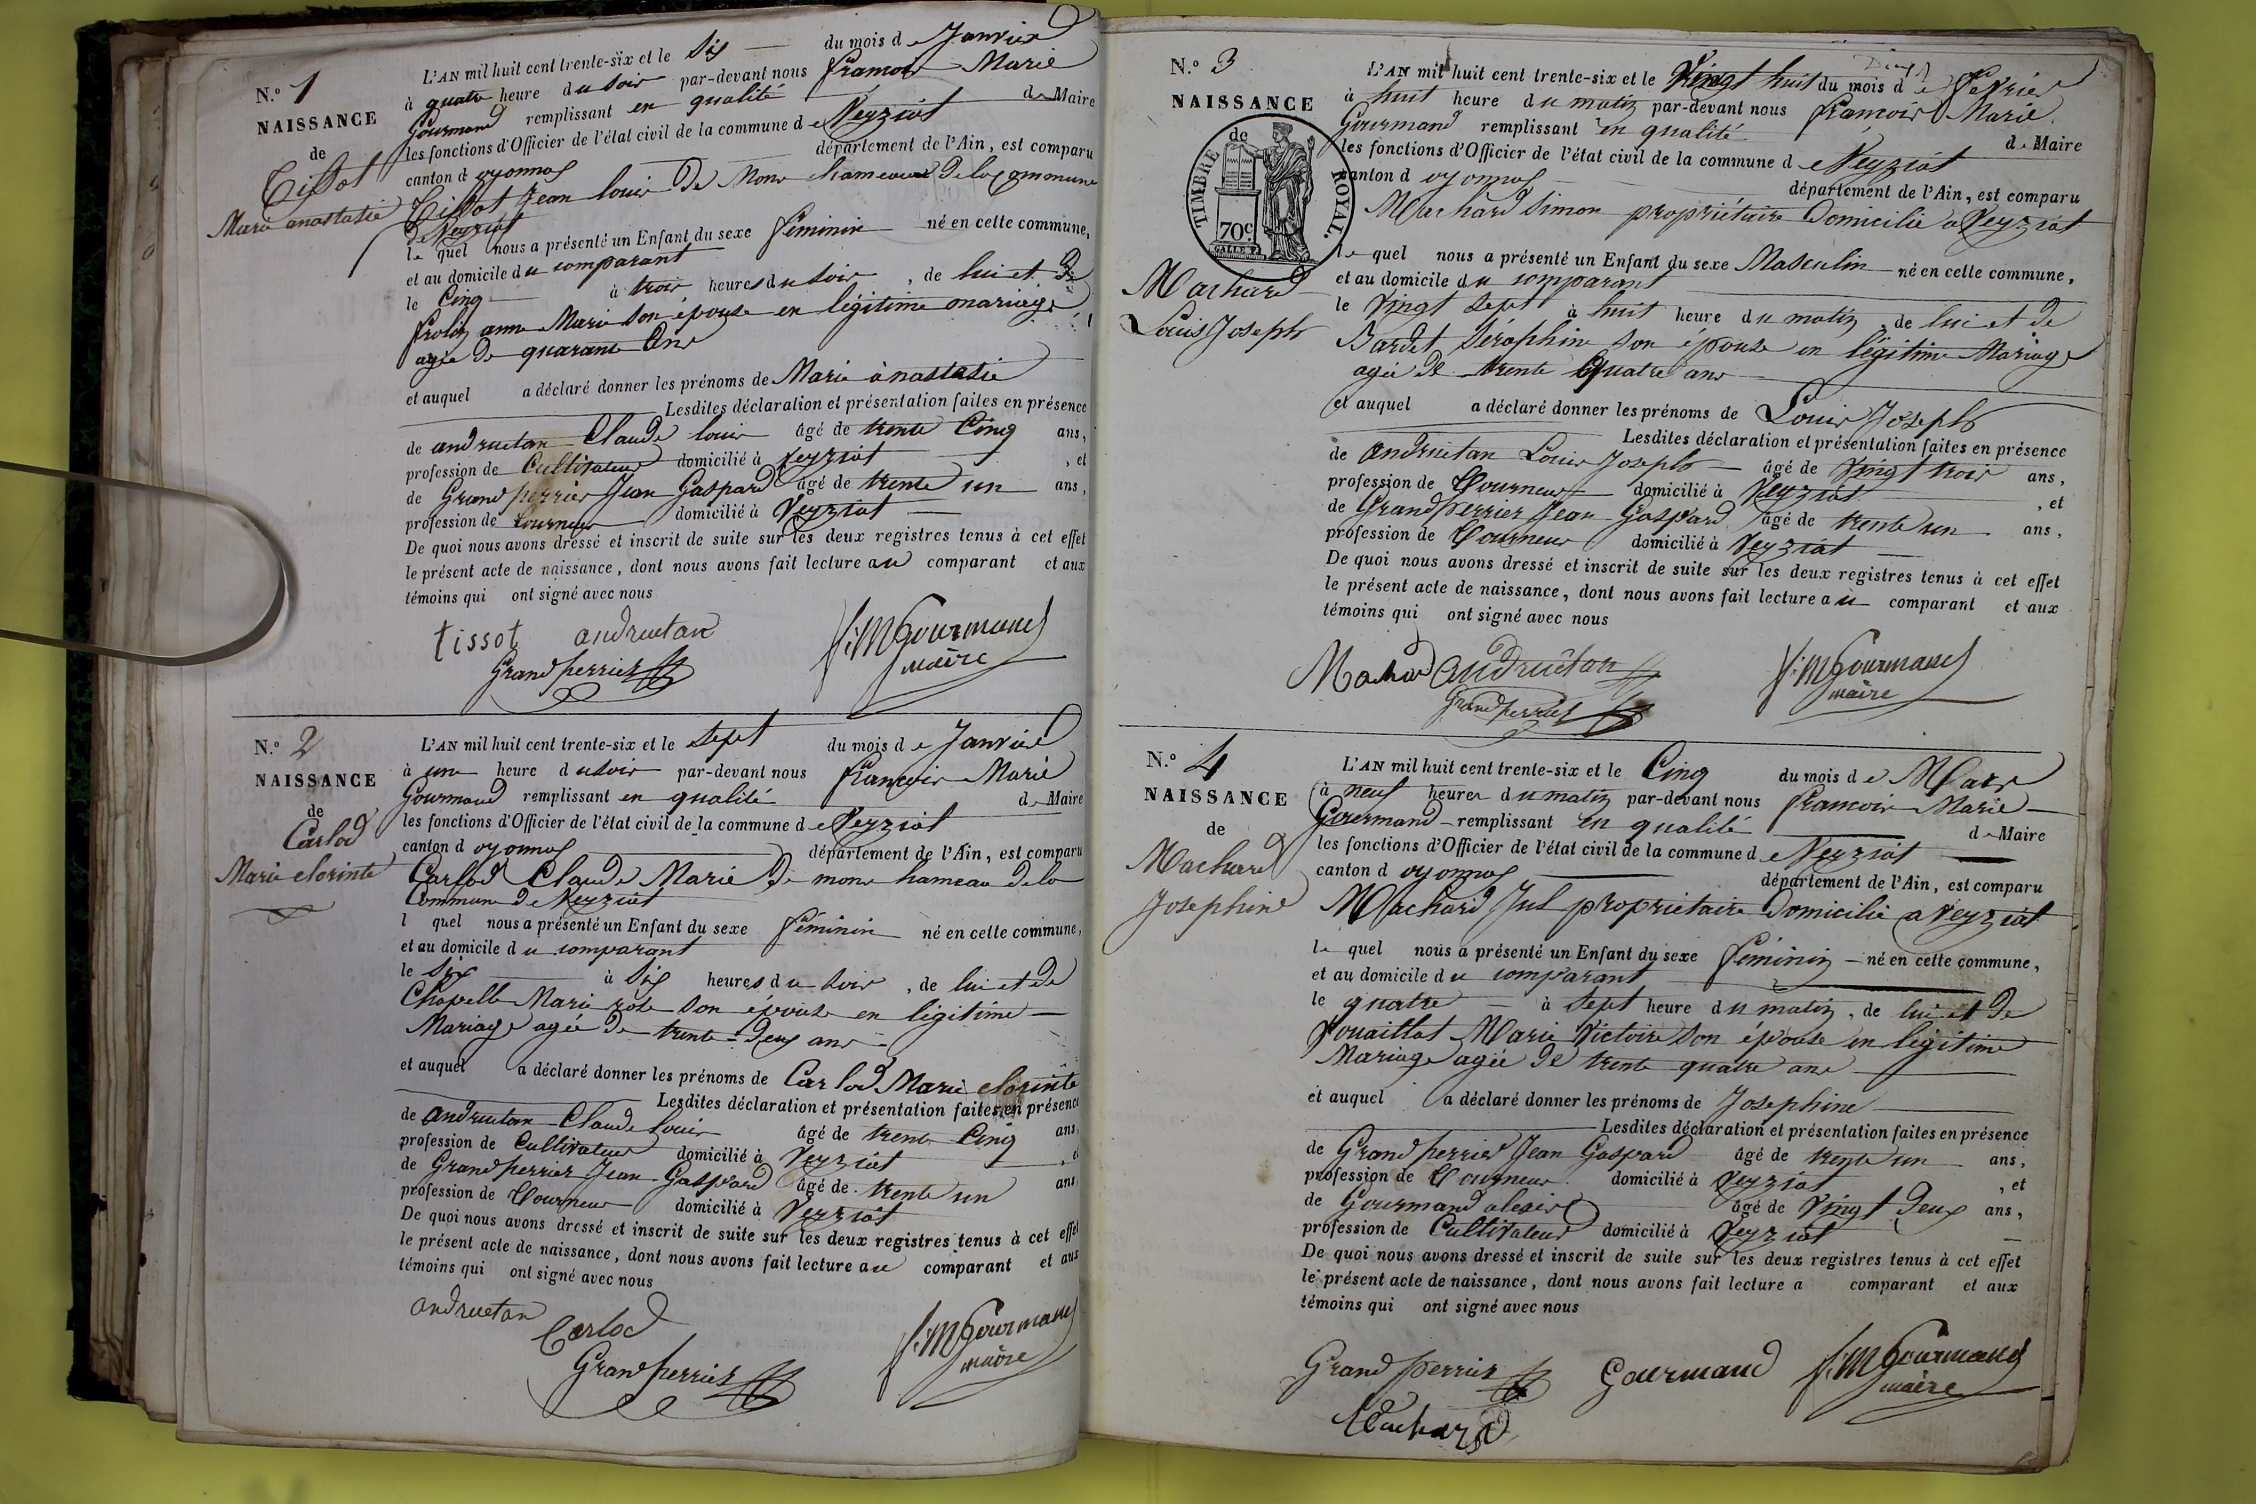 N.º 1
NAISSANCE
de
Tissot
Marie anastasie
L'AN mil huit cent trente-six et le Six du mois de Janvier
à quatre heure du soir par-devant nous françois Marie
Gourmand remplissant en qualité de Maire
les fonctions d'Officier de l'état civil de la commune de Veyziat
canton d oyonnax département de l'Ain, est comparu
Tissot Jean louis De Mons hameau De la Commune
De Veyziat
le quel nous a présenté un Enfant du sexe féminin né en cette commune,
et au domicile du comparant
le Cinq à trois heures du soir, de lui et De
anne Marie son épouse en légitime mariage
agée De quarante Ans
et auquel a déclaré donner les prénoms de Marie anastasie
Lesdites déclaration et présentation faites en présence
de andruetan Claude louis âgé de trente Cinq ans,
profession de Cultivateur domicilié à veyziat, et
de Grandperrier Jean Gaspard âgé de trente un ans,
profession de tourneur domicilié à Veyziat
De quoi nous avons dressé et inscrit de suite sur les deux registres tenus à cet effet
le présent acte de naissance, dont nous avons fait lecture au comparant et aux
témoins qui ont signé avec nous
tissot andruetan f:M Gourmand
Grandperrier maire
N.º 2
NAISSANCE
de
Carlod
Marie clorinte
L'AN mil huit cent trente-six et le Sept du mois de Janvier
à une heure du soir par-devant nous françois Marie
Gourmand remplissant en qualité de Maire
les fonctions d'Officier de l'état civil de la commune de Veyziat
canton d oyonnax département de l'Ain, est comparu
Carlod Claude Marie De mons hameau De la
Commune De Veyziat
l quel nous a présenté un Enfant du sexe féminin né en cette commune,
et au domicile du comparant
le six à six heures du soir, de lui et de
Chapelle Marie rose son épouse en légitime
Mariage agée De trente-Deux ans
et auquel a déclaré donner les prénoms de Carlod Marie clorinte
Lesdites déclaration et présentation faites en présence
de andruetan Claude louis âgé de trente Cinq ans,
profession de Cultivateur domicilié à Veyziat, et
de Grandperrier Jean Gaspard âgé de trente un ans
profession de Tourneur domicilié à Veyziat
De quoi nous avons dressé et inscrit de suite sur les deux registres tenus à cet effet
le présent acte de naissance, dont nous avons fait lecture au comparant et aux
témoins qui ont signé avec nous
andruetan Carlod f:M Gourmand
Grandperrier maire
N.º 3
NAISSANCE
de
TIMBRE ROYAL.
70c
Machard
Louis Joseph
L'AN mil huit cent trente-six et le Vingt huit du mois de Fevrier
à huit heure du matin par-devant nous françois Marie
Gourmand remplissant en qualité de Maire
les fonctions d'Officier de l'état civil de la commune de Veyziat
canton d oyonnax département de l'Ain, est comparu
Machard Simon propriétaire Domicilié a Veyziat
le quel nous a présenté un Enfant du sexe Masculin né en cette commune,
et au domicile du comparant
le Vingt sept à huit heure du matin, de lui et de
Bardet Séraphine son épouse en légitime Mariage
agée de trente Quatre ans
et auquel a déclaré donner les prénoms de Louis Joseph
Lesdites déclaration et présentation faites en présence
de andruetan Louis Joseph âgé de Vingt trois ans,
profession de Tourneur domicilié à Veyziat, et
de Grandperrier Jean Gaspard âgé de trente un ans,
profession de Tourneur domicilié à Veyziat
De quoi nous avons dressé et inscrit de suite sur les deux registres tenus à cet effet
le présent acte de naissance, dont nous avons fait lecture au comparant et aux
témoins qui ont signé avec nous
Machard andruétan f:M Gourmand
Grandperrier maire
N.º 4
NAISSANCE
de
Machard
Josephine
L'AN mil huit cent trente-six et le Cinq du mois de Mars
à neuf heures du matin par-devant nous françois Marie
Gourmand remplissant en qualité de Maire
les fonctions d'Officier de l'état civil de la commune de Veyziat
canton d oyonnax département de l'Ain, est comparu
Machard Jul propriétaire Domicilié a Veyziat
le quel nous a présenté un Enfant du sexe féminin né en cette commune,
et au domicile du comparant
le quatre à sept heure du matin, de lui et De
Marie Victoire son épouse en légitime
Mariage agée de trente quatre ans
et auquel a déclaré donner les prénoms de Josephine
Lesdites déclaration et présentation faites en présence
de Grandperrier Jean Gaspard âgé de trente un ans,
profession de Tourneur domicilié à Veyziat, et
de Gourmand alexis âgé de Vingt Deux ans,
profession de Cultivateur domicilié à Veyziat
De quoi nous avons dressé et inscrit de suite sur les deux registres tenus à cet effet
le présent acte de naissance, dont nous avons fait lecture a comparant et aux
témoins qui ont signé avec nous
Grandperrier Gourmand f:M Gourmand
Machard maire